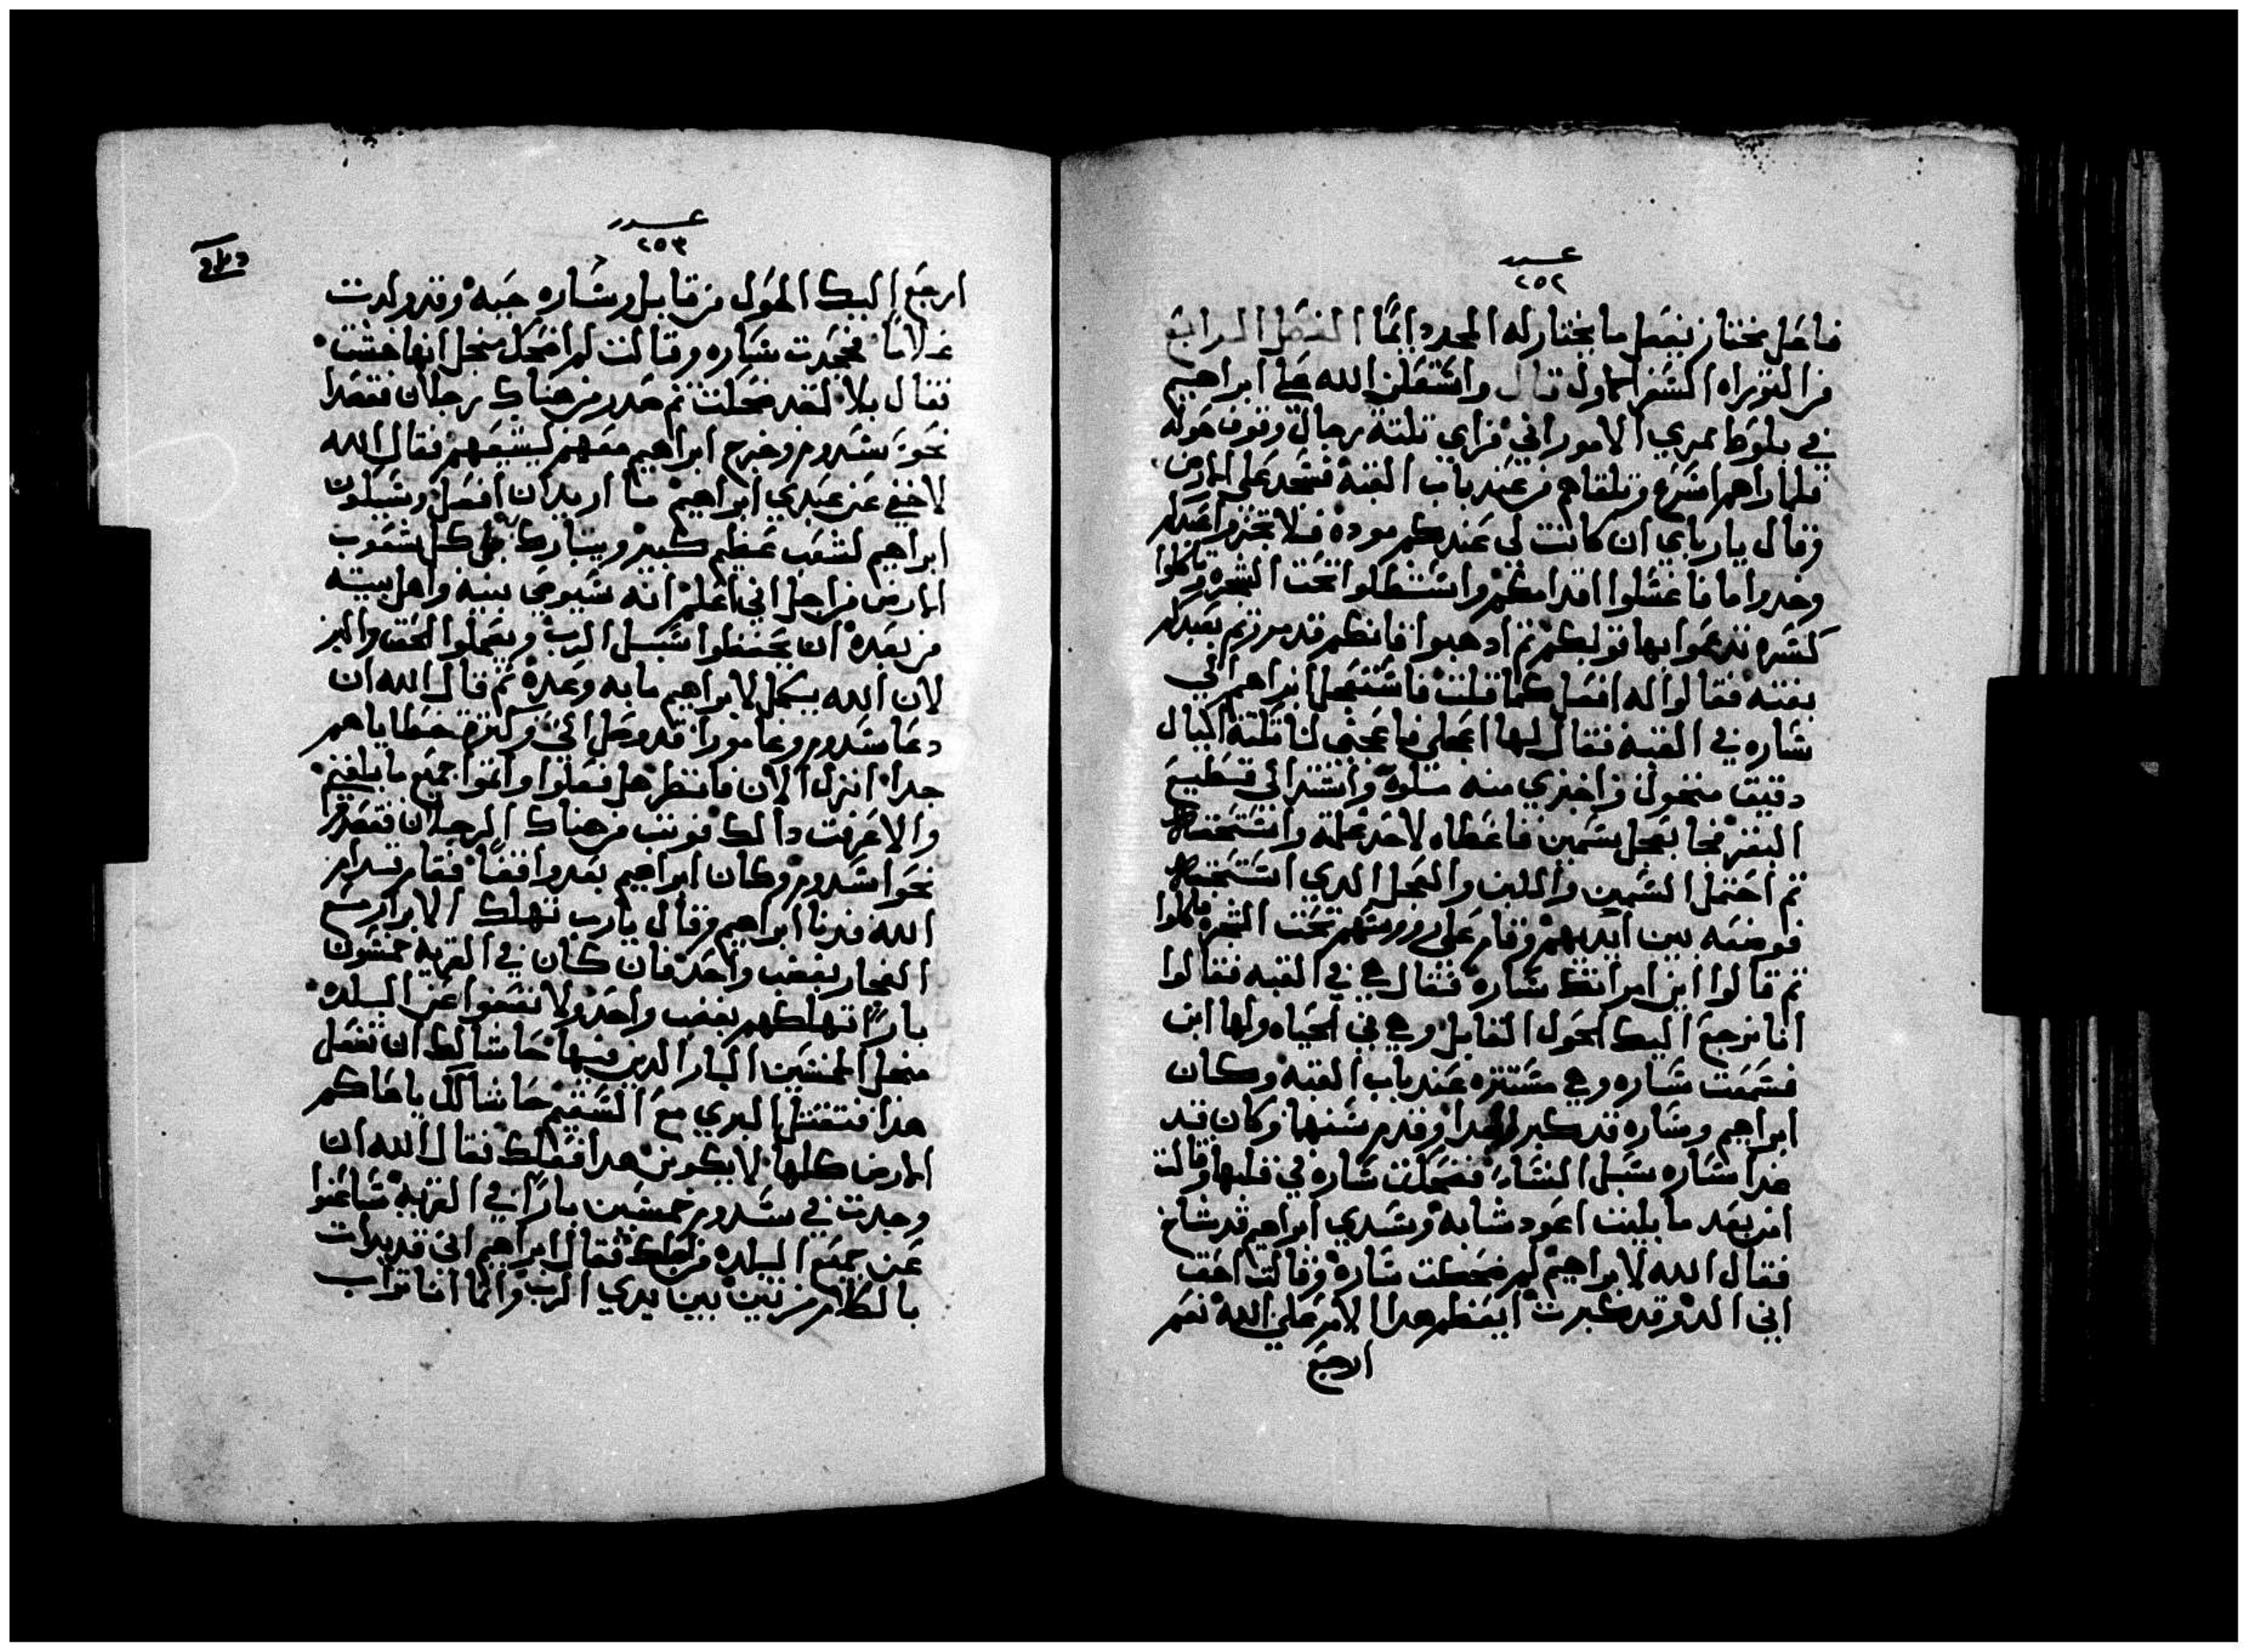 عدد
٢٥٢
فاعل مختار يفعل ما يختار له المجد دايمًا الفصل الرابع
من التوراه السفر الاول قال واستعلن الله علي ابراهيم
في بلوط ممري الاموراني فراي تلتة رجال وقوف حوله
فلما راهم اسرع وتلقاهم من عند باب القبه فسجد علي الارض
وقال يارباي ان كانت لي عندكم موده فلا تجوزوا عبدكم
وخدوا ما فاغسلوا اقدامكم واستظلوا تحت الشجره وتاكلوا
كسره تدعموا بها قولبكم تم ادهبوا فانكم قد مررتم بعبدكم
بغته فقالوا له افعل كما قلت فاستعجل ابراهيم الي
ساره في القبه فقال لها اعجلي فاعجني لنا تلتة اكيال
دقيق منخول واخبزي منه مليلاً واشتد الي قطيع
البقر فجا بعجل سمين فاعطاه لاحد غلمته واستحتهم
تم احتمل السمين واللبن والعجل الدي استحتهم
فوضعه بين ايديهم وقام علي رووسهم تحت الشجره فاكلوا
تم قالوا اين امراتك ساره فقال هي في القبه فقالوا
انا نرجع اليك الحول القابل وهي في الحياه ولها ابن
فسمعت ساره وهي مستتره عند باب القبه وكان
ابراهيم وساره قد كبرا جدا وقدم سنهما وكان قد
عدا ساره سبل النسا فضحكت ساره في قلبها وقالت
امن بعد ما بليت اعود شابه وسيدي ابراهيم قد شاخ
فقال الله لابراهيم لم ضحكت ساره وقالت احق
اني الد وقد كبرت ايعظم هدا الامر علي الله نعم
ارجع
عدد
٢٥٣
ارجع اليك الحول من قابل وساره حيه وقد ولدت
غلامًا فجحدت ساره وقالت لم اضحك منجل انها خشت
فقال بلا لقد ضحكت تم حدر من هناك رجلان فقصدا
نحو سدوم وخرج ابراهيم معهم ليشيعهم فقال الله
لا اخفي عن عبدي ابراهيم ما اريد ان افعل وسيكون
ابراهيم لشعب عظيم كبير ويتبارك به كل شعوب
الارض من اجل اني اعلم انه سيوصي بنيه واهل بيته
من بعده ان يحفظوا سبل الرب ويعملوا الحق والبر
لان الله يكمل لابراهيم ما به وعده تم قال الله ان
دعا سدوم وغامورا قد وصل الي وكترة خطاياهم
جدا انزل الان فانظر هل فعلوا واتموا جميع ما بلغني
والا عرفت دالك فوتب من هناك الرجلان فقصدوا
نحوا سدوم وكان ابراهيم بعد واقفًا فقام قدام
الله فدنا ابراهيم وقال يارب تهلك الابرار مع
الفجار بغضب واحد فان كان في القريه خمسون
بارًا تهلكهم بغضب واحد ولا تعفوا عن البلده
منجل الخمسين البار الدين فيها حاشا لك ان تفعل
هدا فتقتل البري مع السقيم حاشا لك ياحاكم
الارض كلها لا يكونن هدا فعلك فقال الله ان
وجدت في سدوم خمسين بارًا في القريه ساعفوا
عن جميع البلده من اجلك فقال ابراهيم اني قد بدات
بالكلام مرتين بين يدي الرب وانما انا تراب